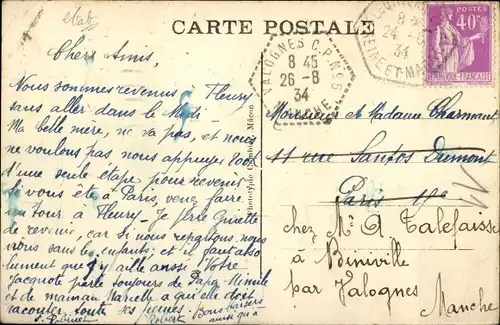 état
CARTE POSTALE
Chers Amis,
Nous sommes revenus à Fleury
sans aller dans le Midi
Ma belle mère, ne va pas, et nous
ne voulons pas, nous appuyer 800 K
d'une seule étape pour revenir
Si vous été à Paris, venez faire
un tour à Fleury - Je
de revenir, car si nous repartons, nous
irons sans les enfants, et il faut abso
lument que j'y aille aussi Votre
Jacquote parle toujours de Papa Mimile
et de maman Marcelle à qui elle doit
raconter toute ses peines. Bons baisers
ainsi qu'à
Robert
VALOGNES C.P. N°5
8 45
26 - 8
34
MANCHE
8
24
34
SEINE ET MARNE
POSTES
40c
REPUBLIQUE FRANÇAISE
Mâcon
Monsieur de Madame Charmant
11 rue Santos Dumont
Paris
chez Mr A Talefaisse
à Biniville
par Valognes
Manche